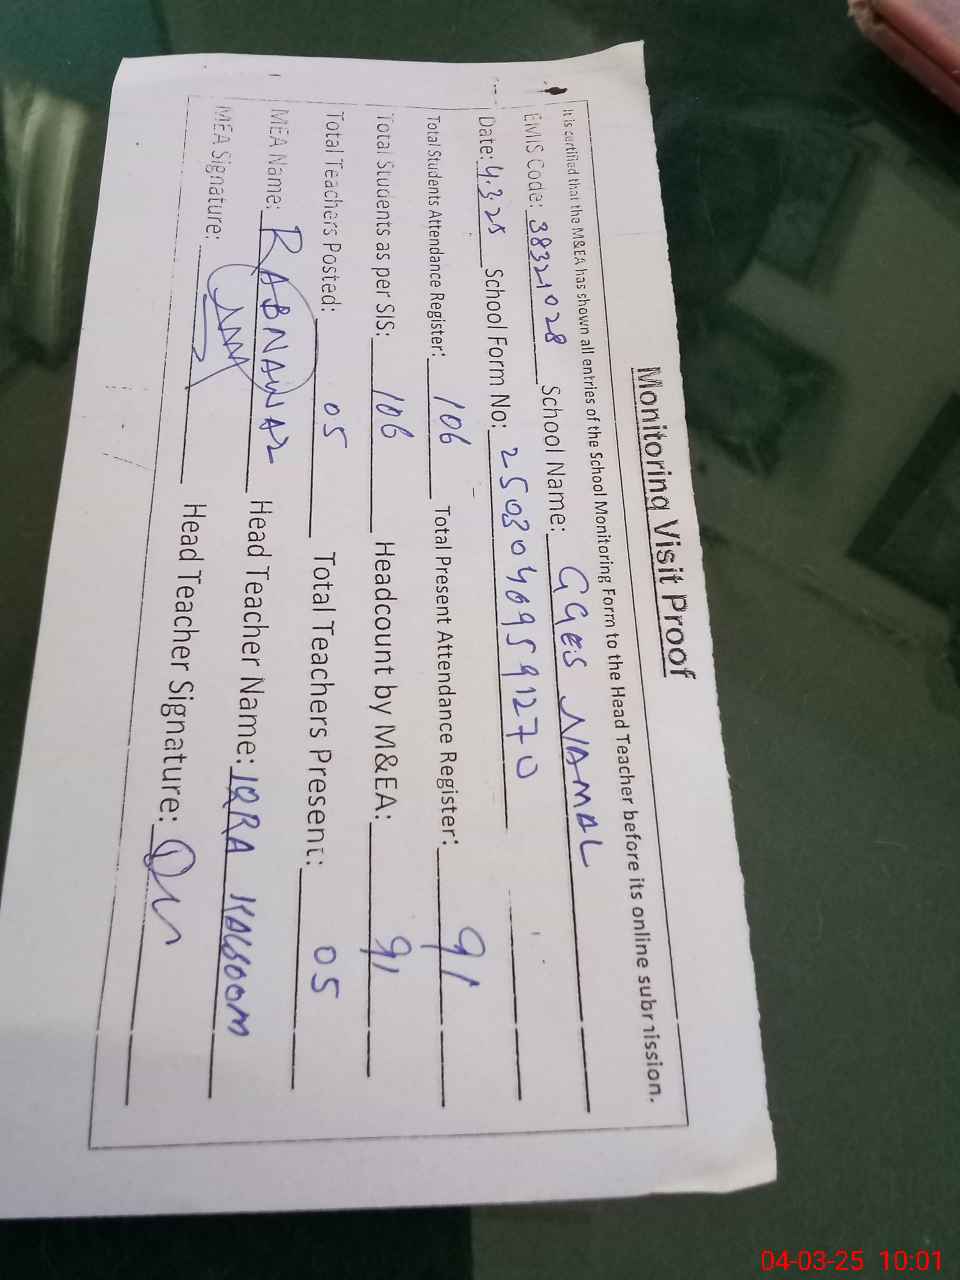 Monitoring Visit Proof
It is certified that the M&EA has shown all entries of the School Monitoring Form to the Head Teacher before its online submission.
EMIS Code: 38321028 School Name: GGES NAMAL
Date: 4.3.25 School Form No: 25030409591270
Total Students Attendance Register: 106 Total Present Attendance Register: 91
Total Students as per SIS: 106 Headcount by M&EA: 91
Total Teachers Posted: 05 Total Teachers Present: 05
MEA Name: RABNAWAZ Head Teacher Name: IQRA KALSOOM
MEA Signature: Head Teacher Signature:
04-03-25 10:01